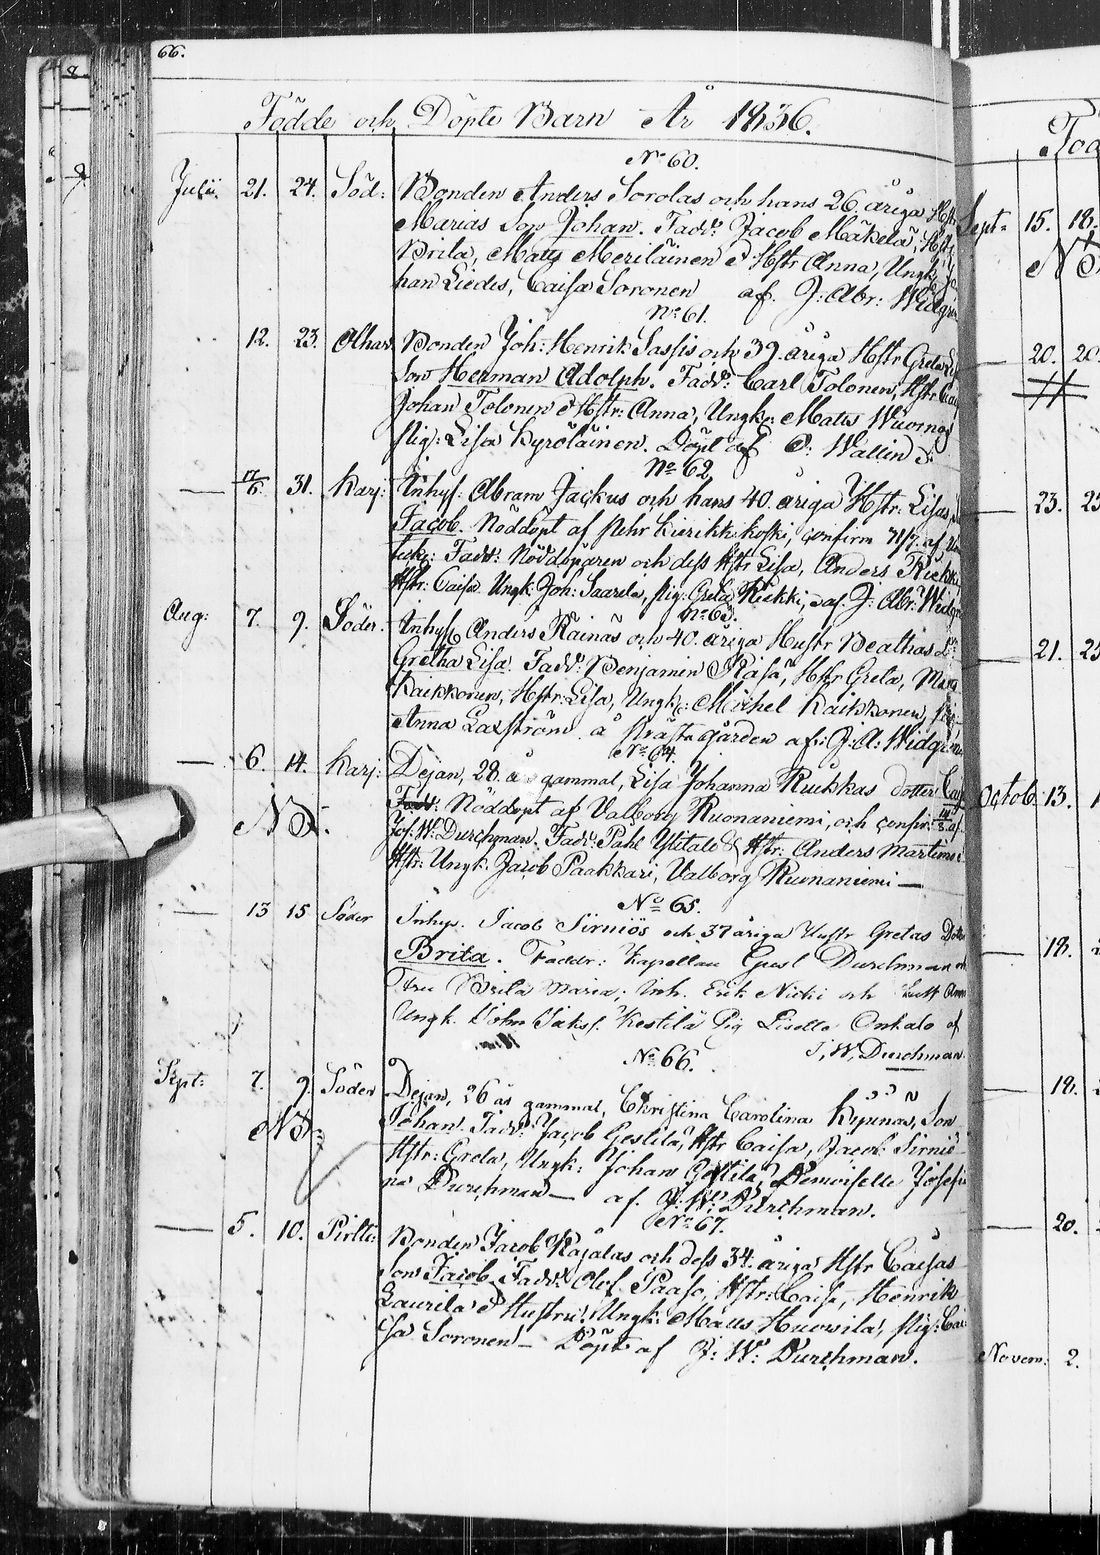 66.
Födde och Döpte Barn År 1836.
No 60.
Julii. 21. 24. Söd: Bonden Anders Sorolas och hans 26 åriga Hstr
Marias Son Johan. Fadd: Jacob Mäkelä, Hstr
Brita, Matts Meriläinen & Hstr Anna, Ungk: Jo-
han Liedes, Caisa Soronen af J: Abr: Widgrén
No 61.
12. 23. Alhav Bonden Joh: Henrik Sassis och 39 åriga Hstr Greta
Son Herman Adolph. Fadd: Carl Tolonen, Hstr
Johan Tolonen & Hstr: Anna, Ungk: Matts
Pig: Lisa Kyröläinen. Döpt af P: Wallin
No 62.
— 17/6. 31. Karj: Inhys: Abram Jackus och hans 40 åriga Hstr: Lisas
Jacob. Nöddöpt af Pehr Kurikkoski, confirm 31/7. af
Fadd: Nöddöparen och dess Hstr Lisa, Anders Riekki
Hstr: Caisa Ungk: Joh: Saarela, Pig: Greta Riekki, af J: Abr: Widgrén
No 63.
Aug: 7. 9. Söder. Inhys Anders Rainas och 40 åriga Hustr Beathas
Gretha Lisa. Fadd: Benjamin Räisä, Hstr Greta,
Kaikkonen, Hstr: Lisa, Ungk: Michel Kaikkonen,
Anna Laxström å Prästgården af: J: A: Widgrén
No 64.
— 6. 14. Karj: Pejan, 28 års gammal, Lisa Johanna Riekkas dotter Caj
NB. Fadd: Nöddöpt af Valborg Ruonaniemi, och confir: af
Jos. W. Durchman. Fadd: Pahl Ylitalo & Hstr: Anders Martimo
Hstr: Ungk: Jacob Paakkari, Valborg Ruonaniemi —
No 65.
— 13 15 Söder Inhys. Jacob Sirniös och 37 åriga Hustr Gretas Dotter
Brita. Faddr: Kapellan Gust Durchman och
Fru Brita Maria; Inh. Erik Nicki och Hust Anna
Ungk. John Jaksf. Kestilä Pig Liselle Onkalo af
J. W. Durchman.
No 66.
Sept: 7. 9. Söder Pejan, 26 års gammal, Christina Carolina Kipinäs, Son
NB: Johan. Fadd: Jacob Gestilä, Hstr Caisa, Jacob Sirniö
Hstr: Greta, Ungk: Johan Gestilä, Demoiselle Josefi-
na Durchman — af. J: W: Durchman.
No 67.
— 5. 10. Pirtti: Bonden Jacob Kajalas och dess 34 åriga Hstr Caisas
Son Jacob. Fadd: Olof Paaso, Hstr: Caisa, Henrik
Laurila & Hustru. Ungk: Matts Huovila, Pig: Cai-
sa Soronen — Döpt af J: W: Durchman.
Sept: 15. 18.
NB
— 20. 20.
— 23.
— 21.
Octob: 13.
— 18.
— 18.
— 20.
Novem: 2.